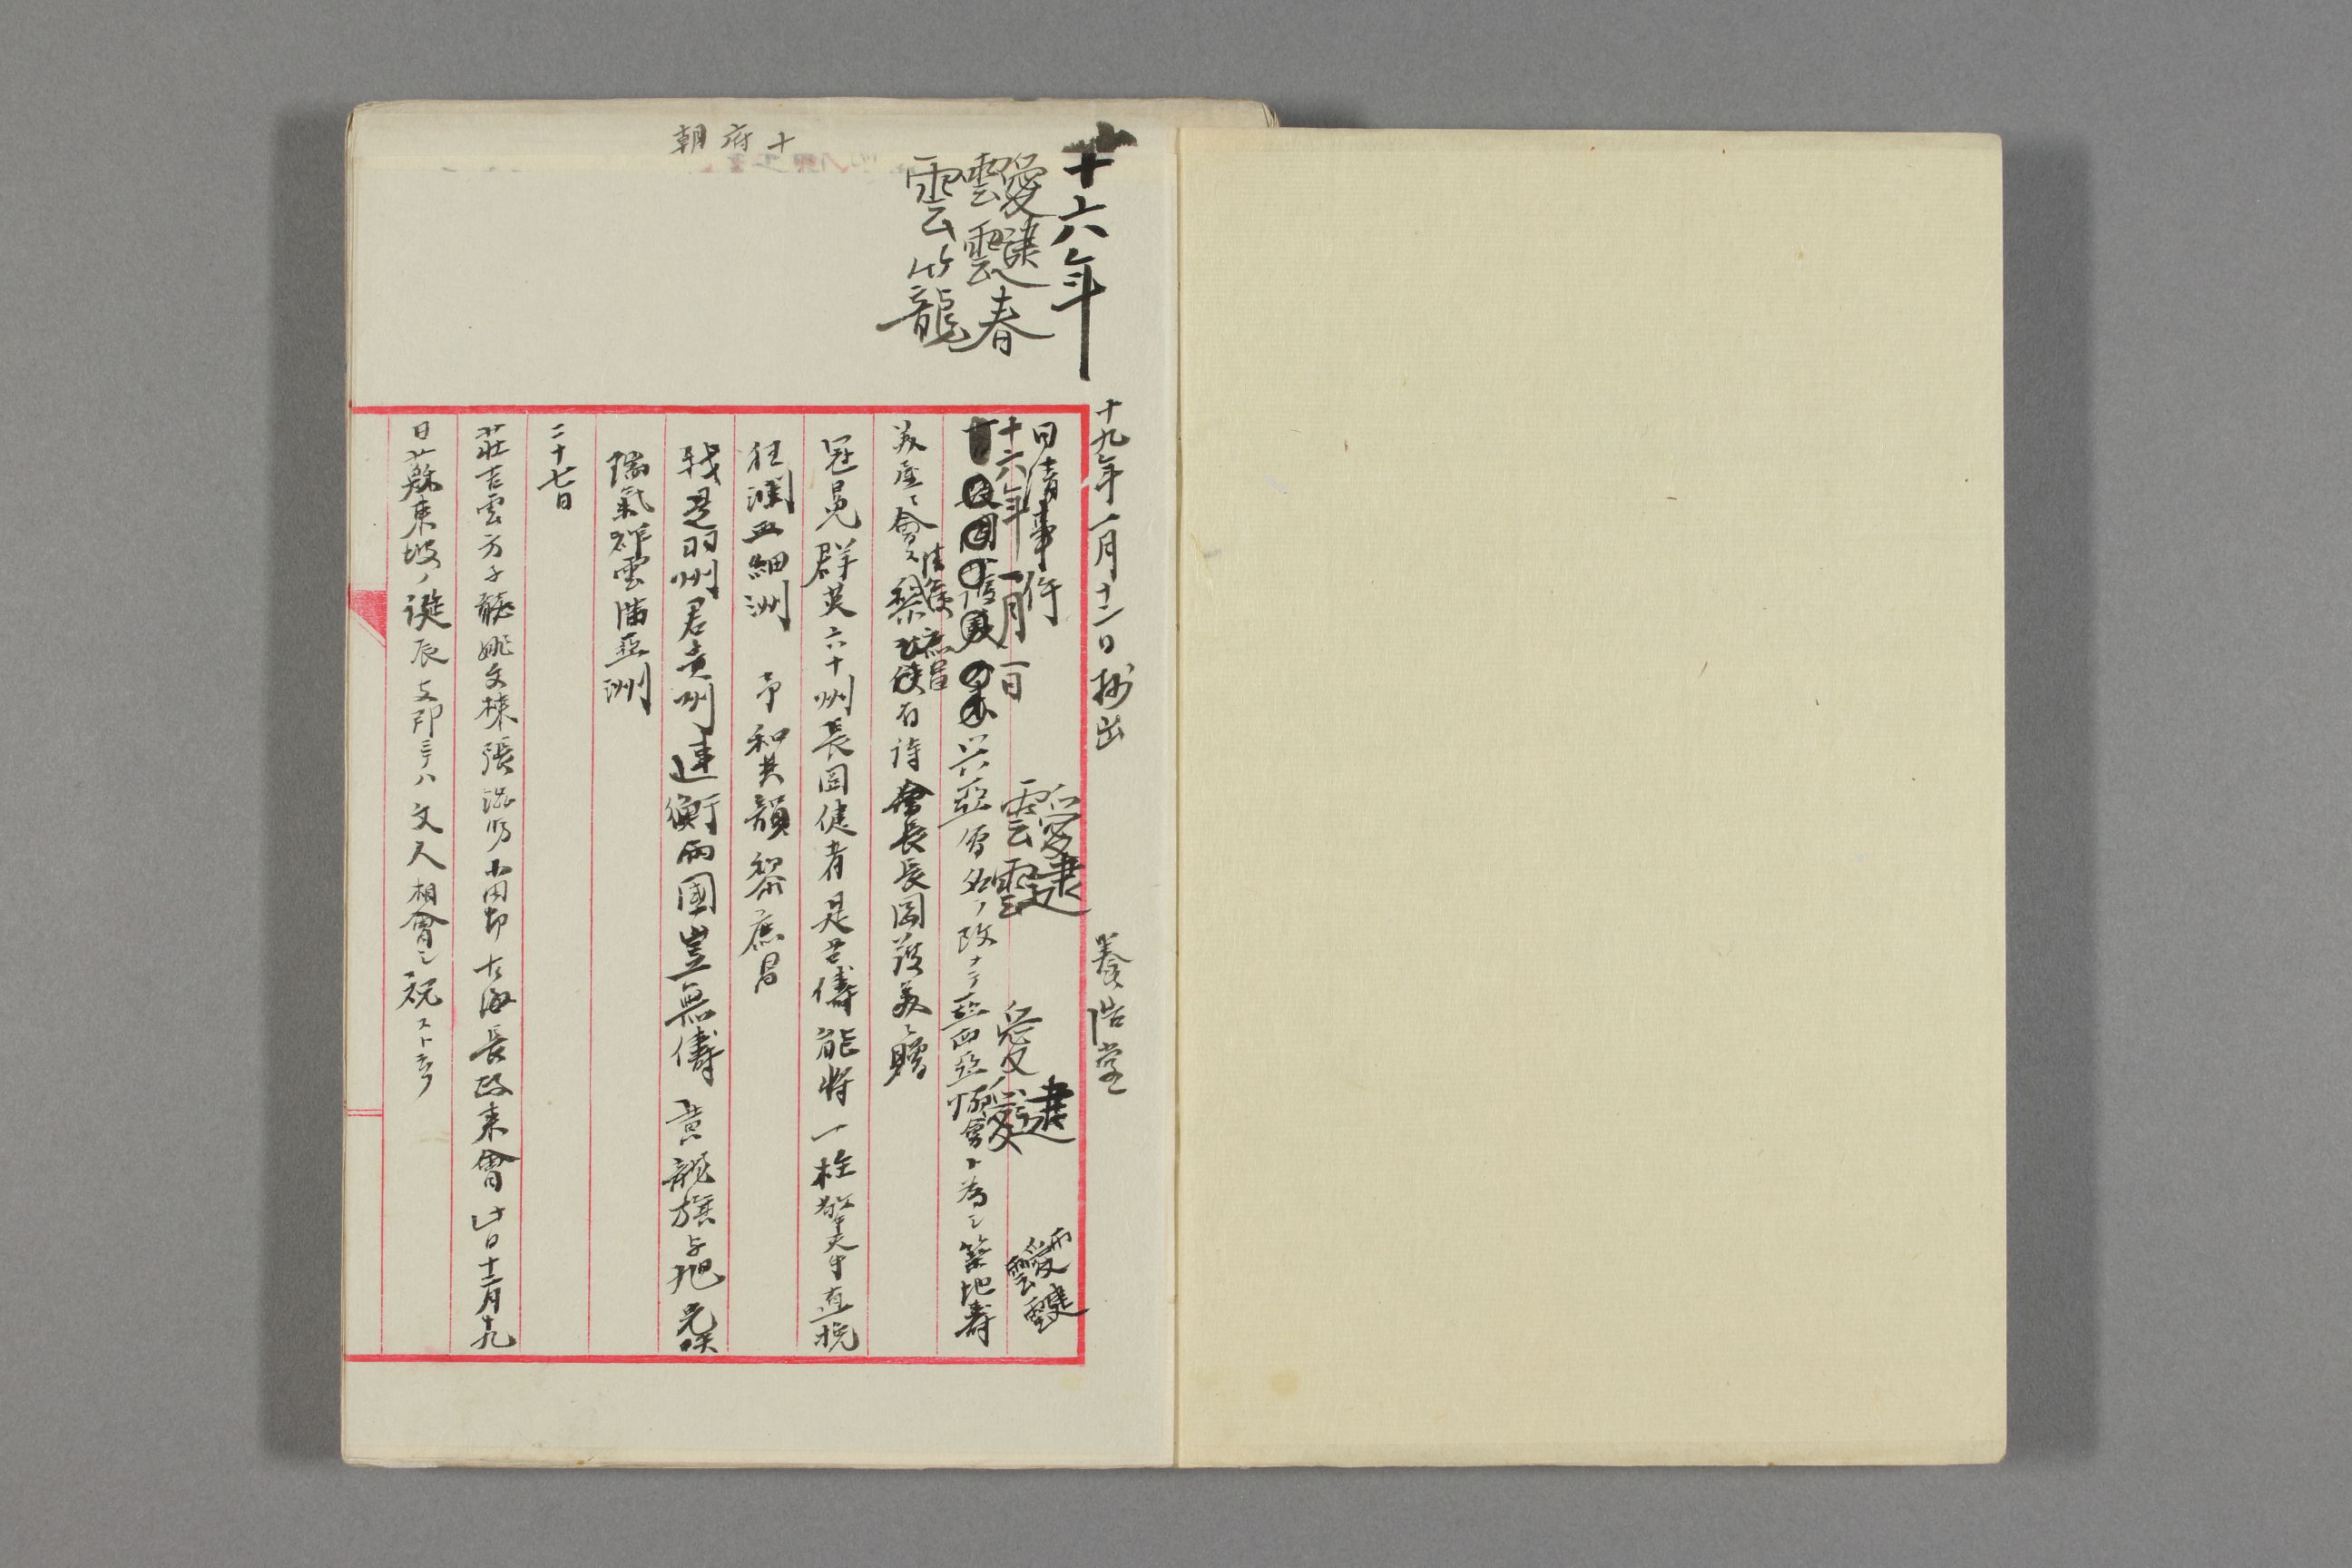 十府朝
十六年
靉靆春
雲雲
雲竹龍
十九年一月十二日抄出 養浩堂
日清事件
靉靆
愛靉靆
靉靆
十六年一月一日
興亞會名ヲ改ナテ亞西亞協會ト為シ築地壽
美屋ニ會ス清使黎庶昌有詩會長長岡護美ニ贈
冠冕群英六十州長岡健者是君儔能将一柱擎天手直挽
狂瀾亜細洲 予和其韻黎庶昌
我是羽州君貴州連衡兩國豈無儔 黄龍旗与旭光映
瑞氣祥雲滿亞洲
二十七日
荘吉雲万子龍姚文棟張滋昉小田切大海長岡来會此日十二月十九
日蘇東坡ノ誕辰支那ニテハ文人相會シ祝スト云フ